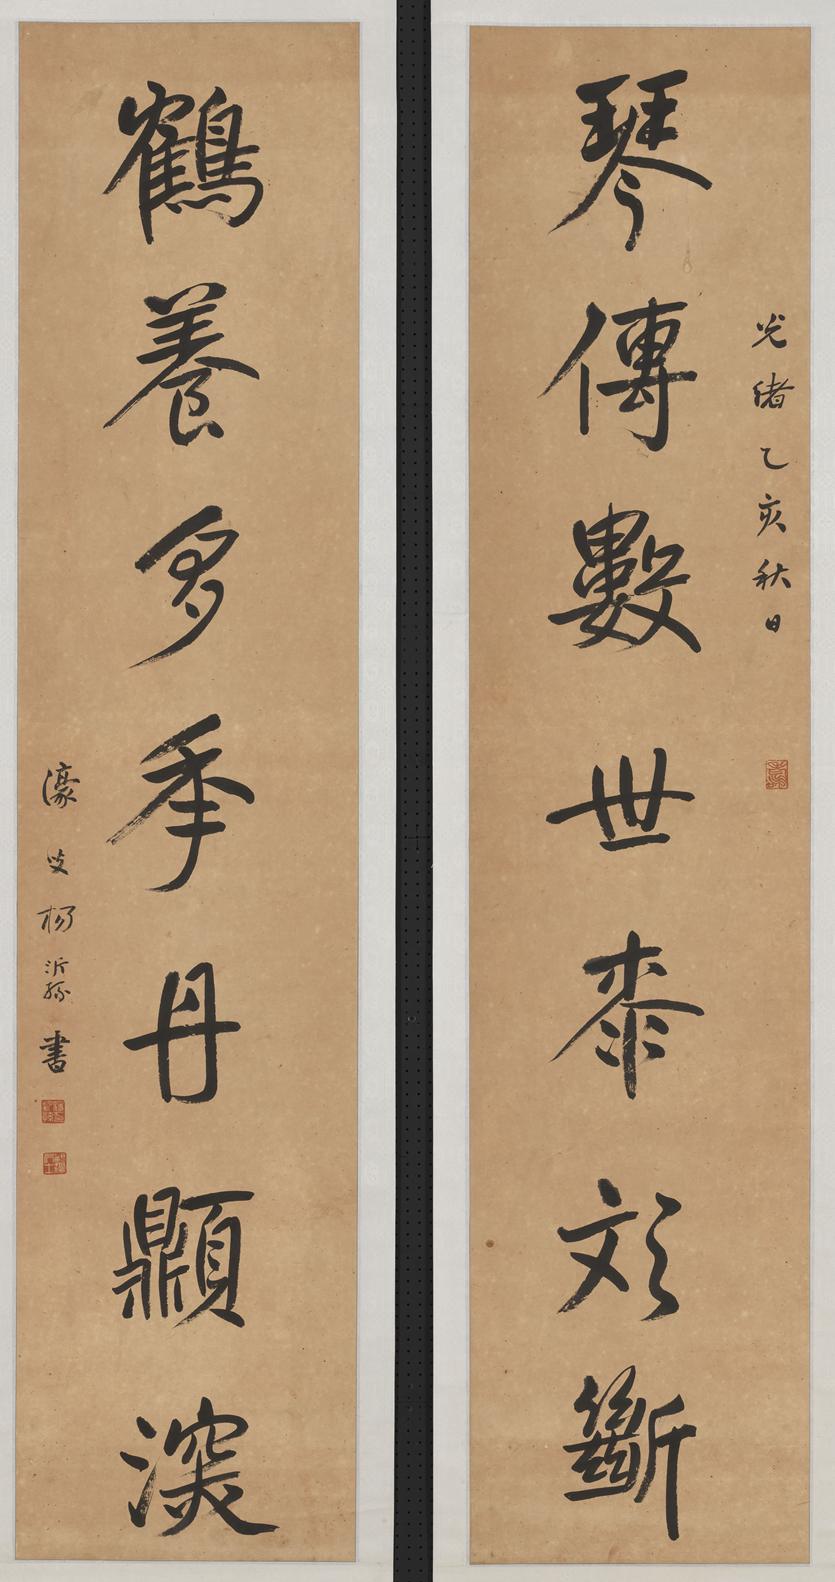 光緒乙亥秋日
琴傳數世桼彣斷
鶴養多秊丹𩕢深
濠叟楊沂孫書